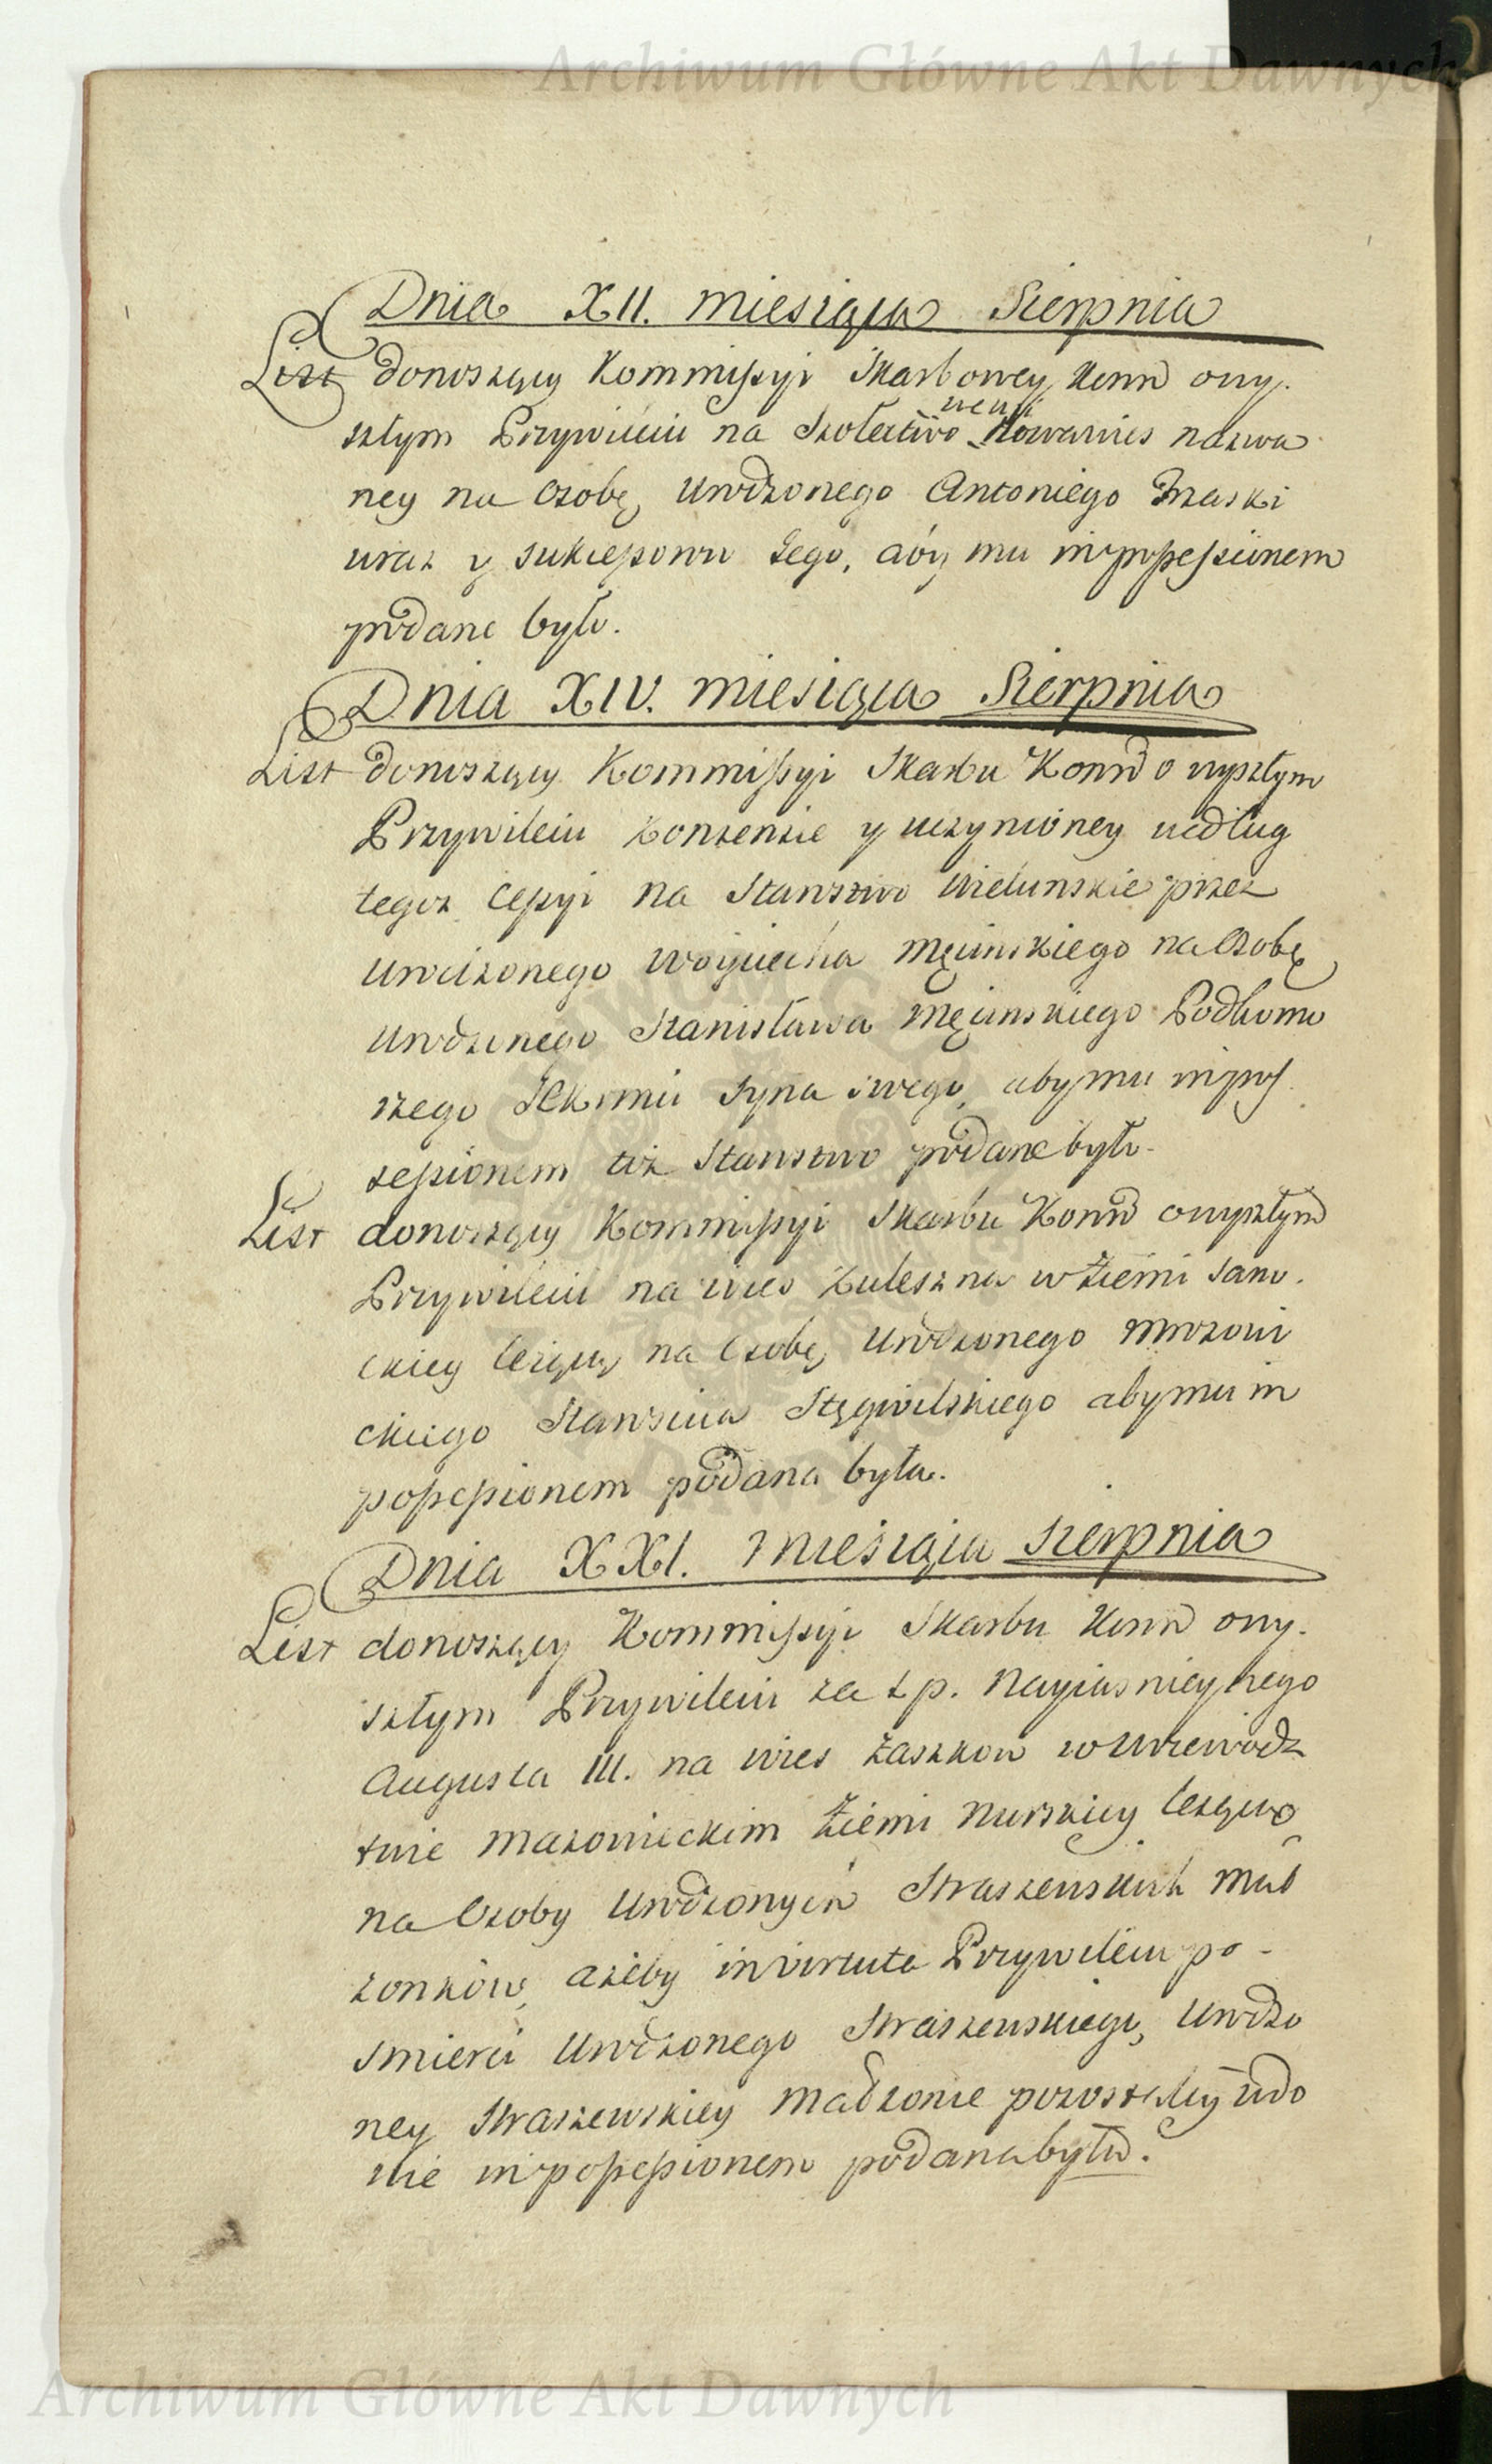 Archiwum Główne Akt Dawnych
Dnia XII. miesiąca Sierpnia
List donoszący Kommissyi Skarbowey Koro͞n o wy-
we wsi
szłym Przywileiu na Szolectwo Nowawies nazwa
ney na Osobę Urodzonego Antoniego Zraski
wraz y sukcessorow Jego, aby mu in possessionem
podane było.
Dnia XIV. miesiąca Sierpnia
List donoszący Kommissyi Skarbu Koro͞n o wyszłym
Przywileiu Konsensie y uczynioney według
tegoz Cessyi na Starostwo Wielunskie przez
Urodzonego Woyciecha Męcinskiego na Osobę
Urodzonego Stanisława Męcinskiego Podkomo
rzego JEKrmci Syna swego, aby mu in pos-
sessionem toz Starostwo podane było.
List donoszący Kommissyi Skarbu Koro͞n o wyszłym
Przywileiu na wies Kuleszna w Ziemi Sano-
ckiey leżącą na Osobę Urodzonego Mrozowi
ckiego Starostę Stęgwilskiego aby mu in
possessionem podana była.
Dnia XXI. Miesiąca Sierpnia
List donoszący Kommissyi Skarbu Koro͞n o wy-
szłym Przywileiu za s. p. Nayiasnieyszego
Augusta III. na wies Zaszkow w Woiewodz
twie Mazowieckim Ziemi Nurskiey leżącą
na Osoby Urodzonych Straszewskich Mał
zonkow, ażeby in virtute Przywileiu po-
smierci Urodzonego Straszewskiego, Urodzo
ney Straszewskiey Małżonce pozostałey wdo
wie in possessionem podana była.
Archiwum Główne Akt Dawnych